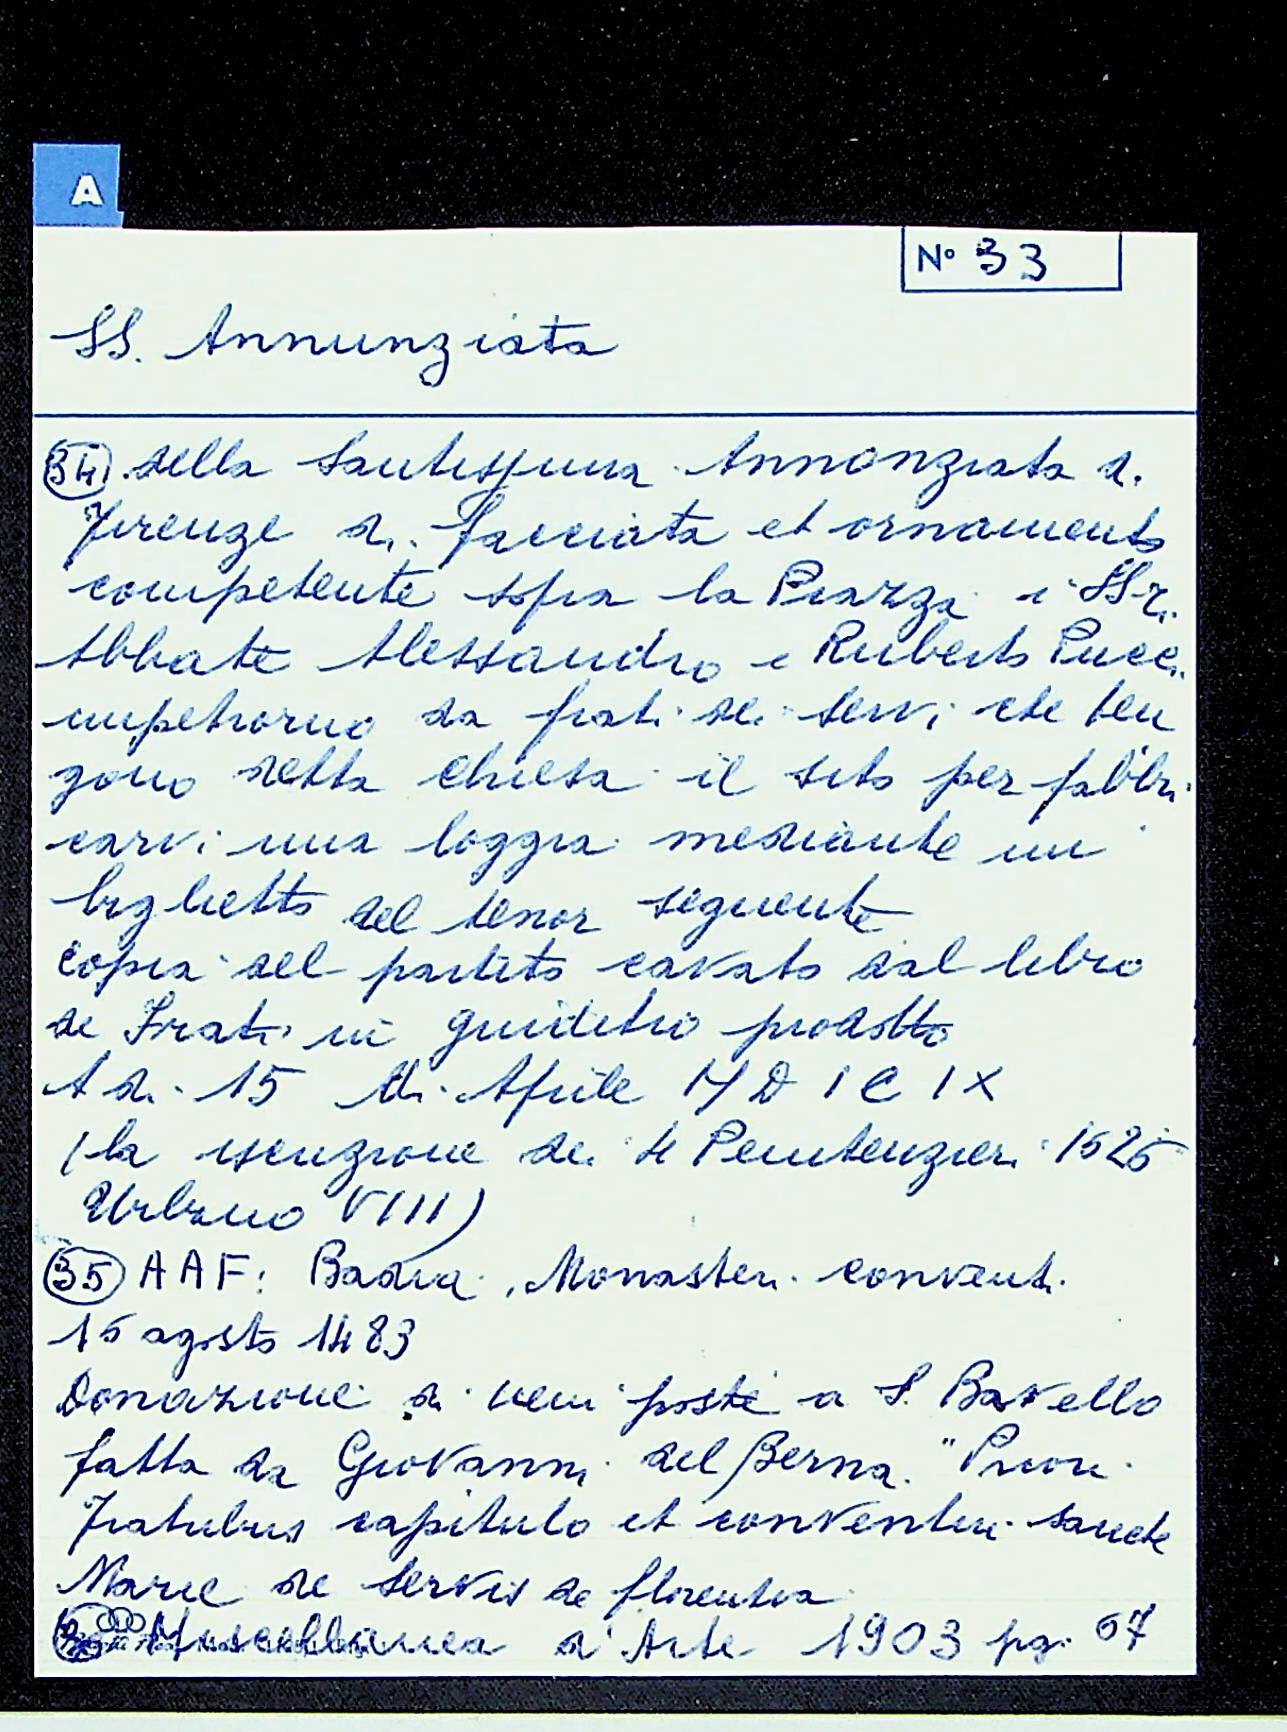 A
N° 33
SS. Annunziata
34 della Santissima Annonziata di
Firenze di facciata et ornamento
competente sopra la Piazza i SSri.
Abbate Alessandro e Ruberto Pucci
impetrorno da frati dei servi che ten
gono detta chiesa il sito per fabbri
carvi una loggia mediante un
biglietto del tenor seguente
copia del partito cavato dal libro
de Frati in guiditio prodotto
A di 15 di Aprile MDICIX
(la iscrizione dei 4 Penitenzieri 1625
Urbano VIII)
35 AAF: Badia, Monasteri conventi
15 agosto 1483
Donazione di beni poste a S. Bavello
fatta da Giovanni del Berna. "Priori
Fratribus capitulo et conventui sancte
Marie de Servis de florentia
Miscellanea d'Arte 1903 pg. 67